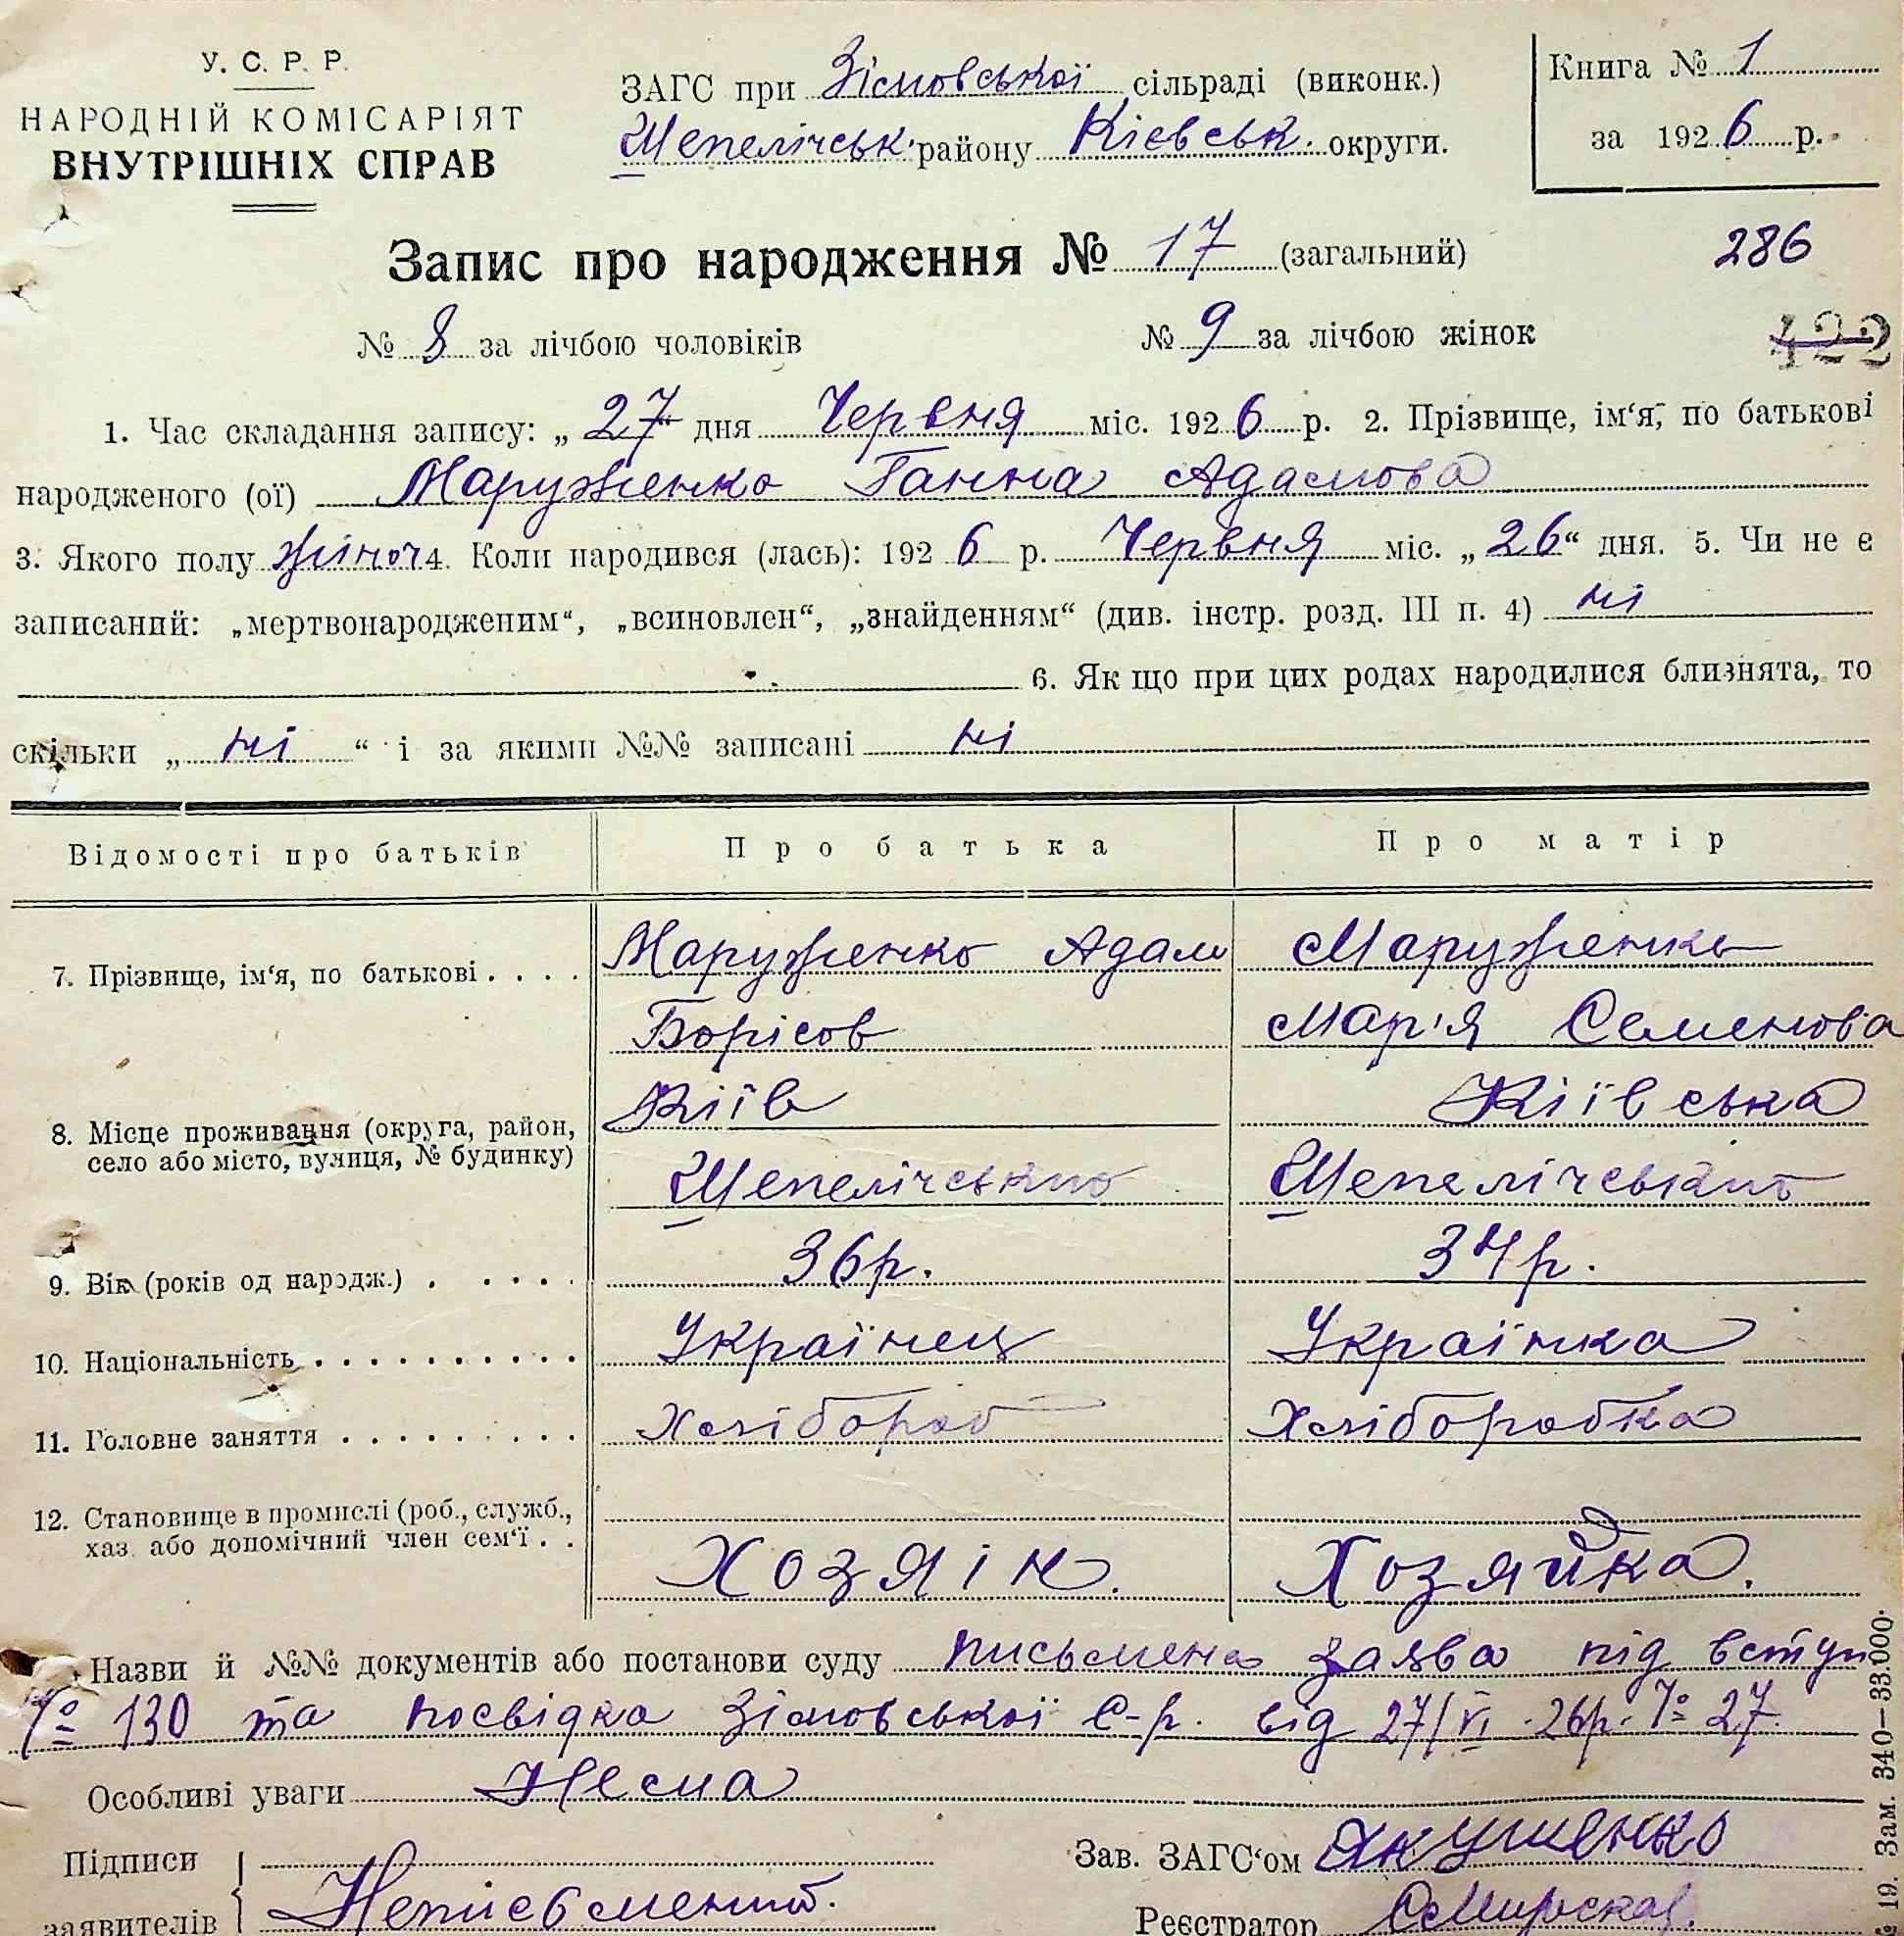 У. С. Р. Р.
НАРОДНІЙ КОМІСАРІЯТ
ВНУТРІШНІХ СПРАВ
ЗАГС при Зімовської сільраді (виконк.)
Шепелічськ. району Кієвськ. округи.
Книга № 1
за 1926 р.
Запис про народження № 17 (загальний)
286
№ 8 за лічбою чоловіків № 9 за лічбою жінок
422
1. Час складання запису: „27“ дня Червня міс. 1926 р. 2. Прізвище, ім‘я, по батькові
народженого (ої) Маруженко Ганна Адамова
3. Якого полу жіноч 4. Коли народився (лась): 1926 р. Червня міс. „26“ дня. 5. Чи не є
записаний: „мертвонародженим“, „всиновлен“, „знайденням“ (див. інстр. розд. III п. 4) ні
6. Як що при цих родах народилися близнята, то
скільки „ні“ і за якими №№ записані ні
Відомості про батьків Про батька Про матір
7. Прізвище, ім‘я, по батькові . . . . Маруженко Адам Маруженко
Борісов Мар'я Семенова
8. Місце проживання (округа, район, село або місто, вулиця, № будинку) Кіїв Кіївська
Шепелічського Шепелічського
9. Вік (років од народж.) . . . . . 36р. 34р.
10. Національність . . . . . . . . . . Українец Українка
11. Головне заняття . . . . . . . . . Хлібороб Хліборобка
12. Становище в промислі (роб., служб.,
хаз. або допомічний член сем‘ї . . Хозяін. Хозяйка.
Назви й №№ документів або постанови суду письмена заява під вступ
№ 130 та посвідка Зімовської С-р. від 27/VI 26р. № 27.
Особливі уваги Нема
Підписи
заявителів Неписьменний.
Зав. ЗАГС‘ом Якушенко
Реєстратор
№ 19. Зам. 340—33.000.